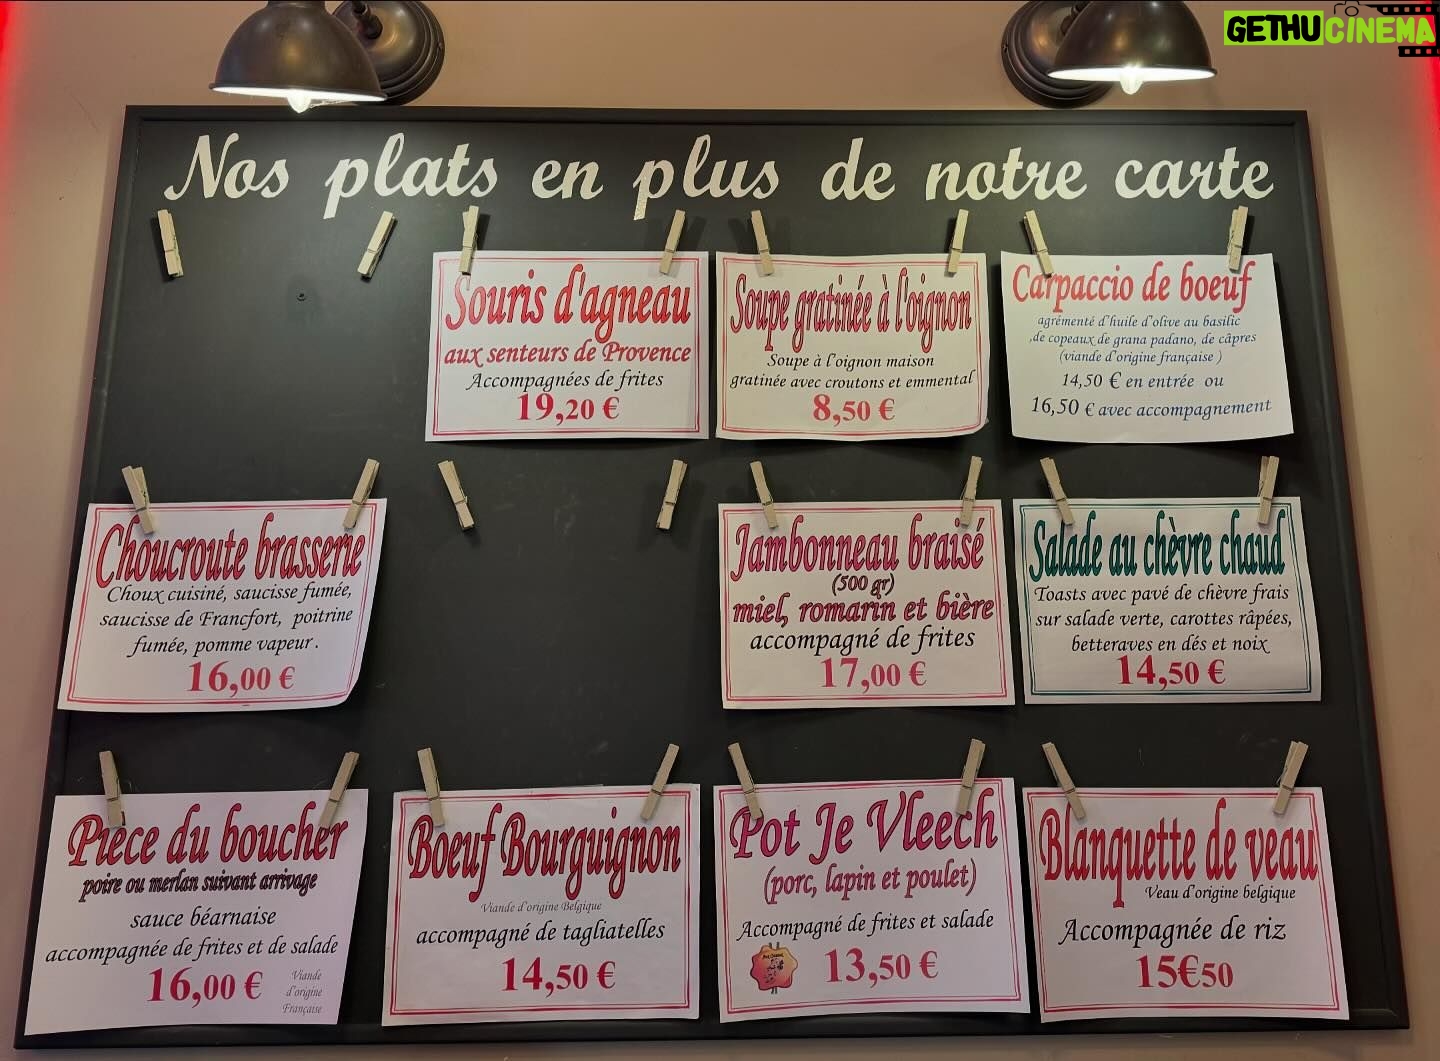 GETHUCINEMA
Nos plats en plus de notre carte
Souris d'agneau
aux senteurs de Provence
Accompagnées de frites
19,20 €
Soupe gratinée à l'oignon
Soupe à l'oignon maison
gratinée avec croutons et emmental
8,50 €
Carpaccio de boeuf
agrémenté d'huile d'olive au basilic
,de copeaux de grana padano, de câpres
(viande d'origine française )
14,50 € en entrée ou
16,50 € avec accompagnement
Choucroute brasserie
Choux cuisiné, saucisse fumée,
saucisse de Francfort, poitrine
fumée, pomme vapeur .
16,00 €
Jambonneau braisé
(500 gr)
miel, romarin et bière
accompagné de frites
17,00 €
Salade au chèvre chaud
Toasts avec pavé de chèvre frais
sur salade verte, carottes râpées,
betteraves en dés et noix
14,50 €
Pièce du boucher
poire ou merlan suivant arrivage
sauce béarnaise
accompagnée de frites et de salade
16,00 €
Viande
d'origine
Française
Boeuf Bourguignon
Viande d'origine Belgique
accompagné de tagliatelles
14,50 €
Pot Je Vleech
(porc, lapin et poulet)
Accompagné de frites et salade
13,50 €
Blanquette de veau
Veau d'origine belgique
Accompagnée de riz
15€50